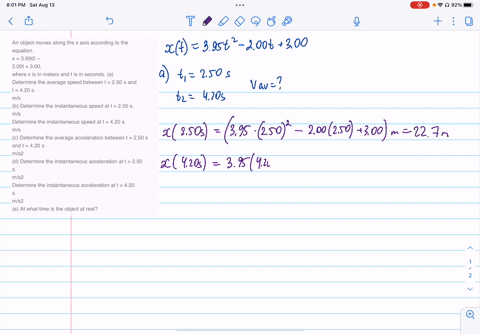 8:01 PM Sat Aug 13
92%
An object moves along the x axis according to the
equation
x = 3.95t2 −
2.00t + 3.00,
where x is in meters and t is in seconds. (a)
Determine the average speed between t = 2.50 s and
t = 4.20 s.
m/s
(b) Determine the instantaneous speed at t = 2.50 s.
m/s
Determine the instantaneous speed at t = 4.20 s.
m/s
(c) Determine the average acceleration between t = 2.50 s
and t = 4.20 s.
m/s2
(d) Determine the instantaneous acceleration at t = 2.50
s.
m/s2
Determine the instantaneous acceleration at t = 4.20
s.
m/s2
(e) At what time is the object at rest?
x(t) = 3.95t² - 2.00t + 3.00
a) t₁ = 2.50 s
Vav = ?
t₂ = 4.20s
x(2.50s) = (3.95 · (2.50)² - 2.00(2.50) + 3.00) m = 22.7m
x(4.20s) = 3.95(4.2
1
2